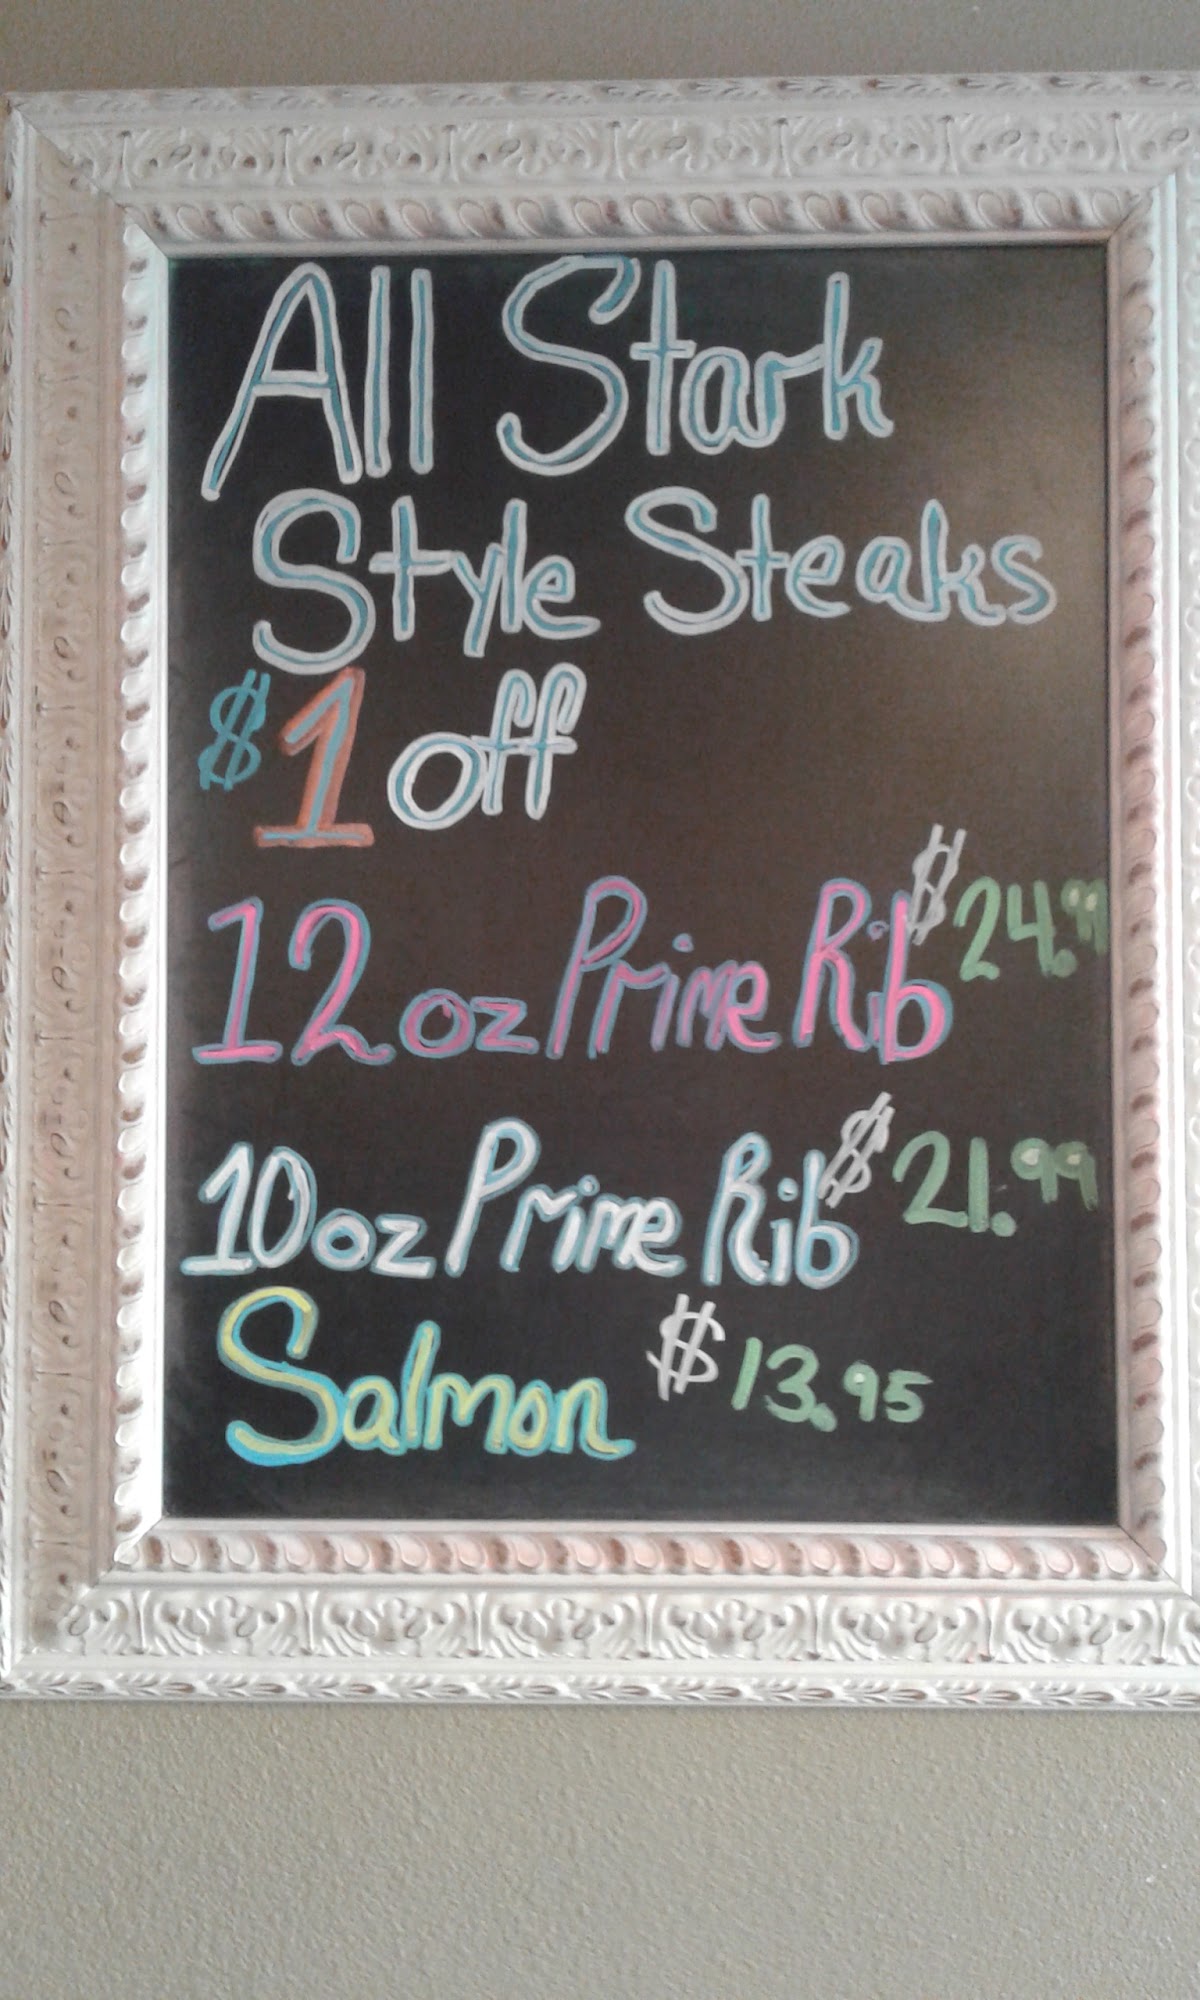 All Stark
Style Steaks
$1 off
12 oz Prime Rib $24.99
10 oz Prime Rib $21.99
Salmon $13.95